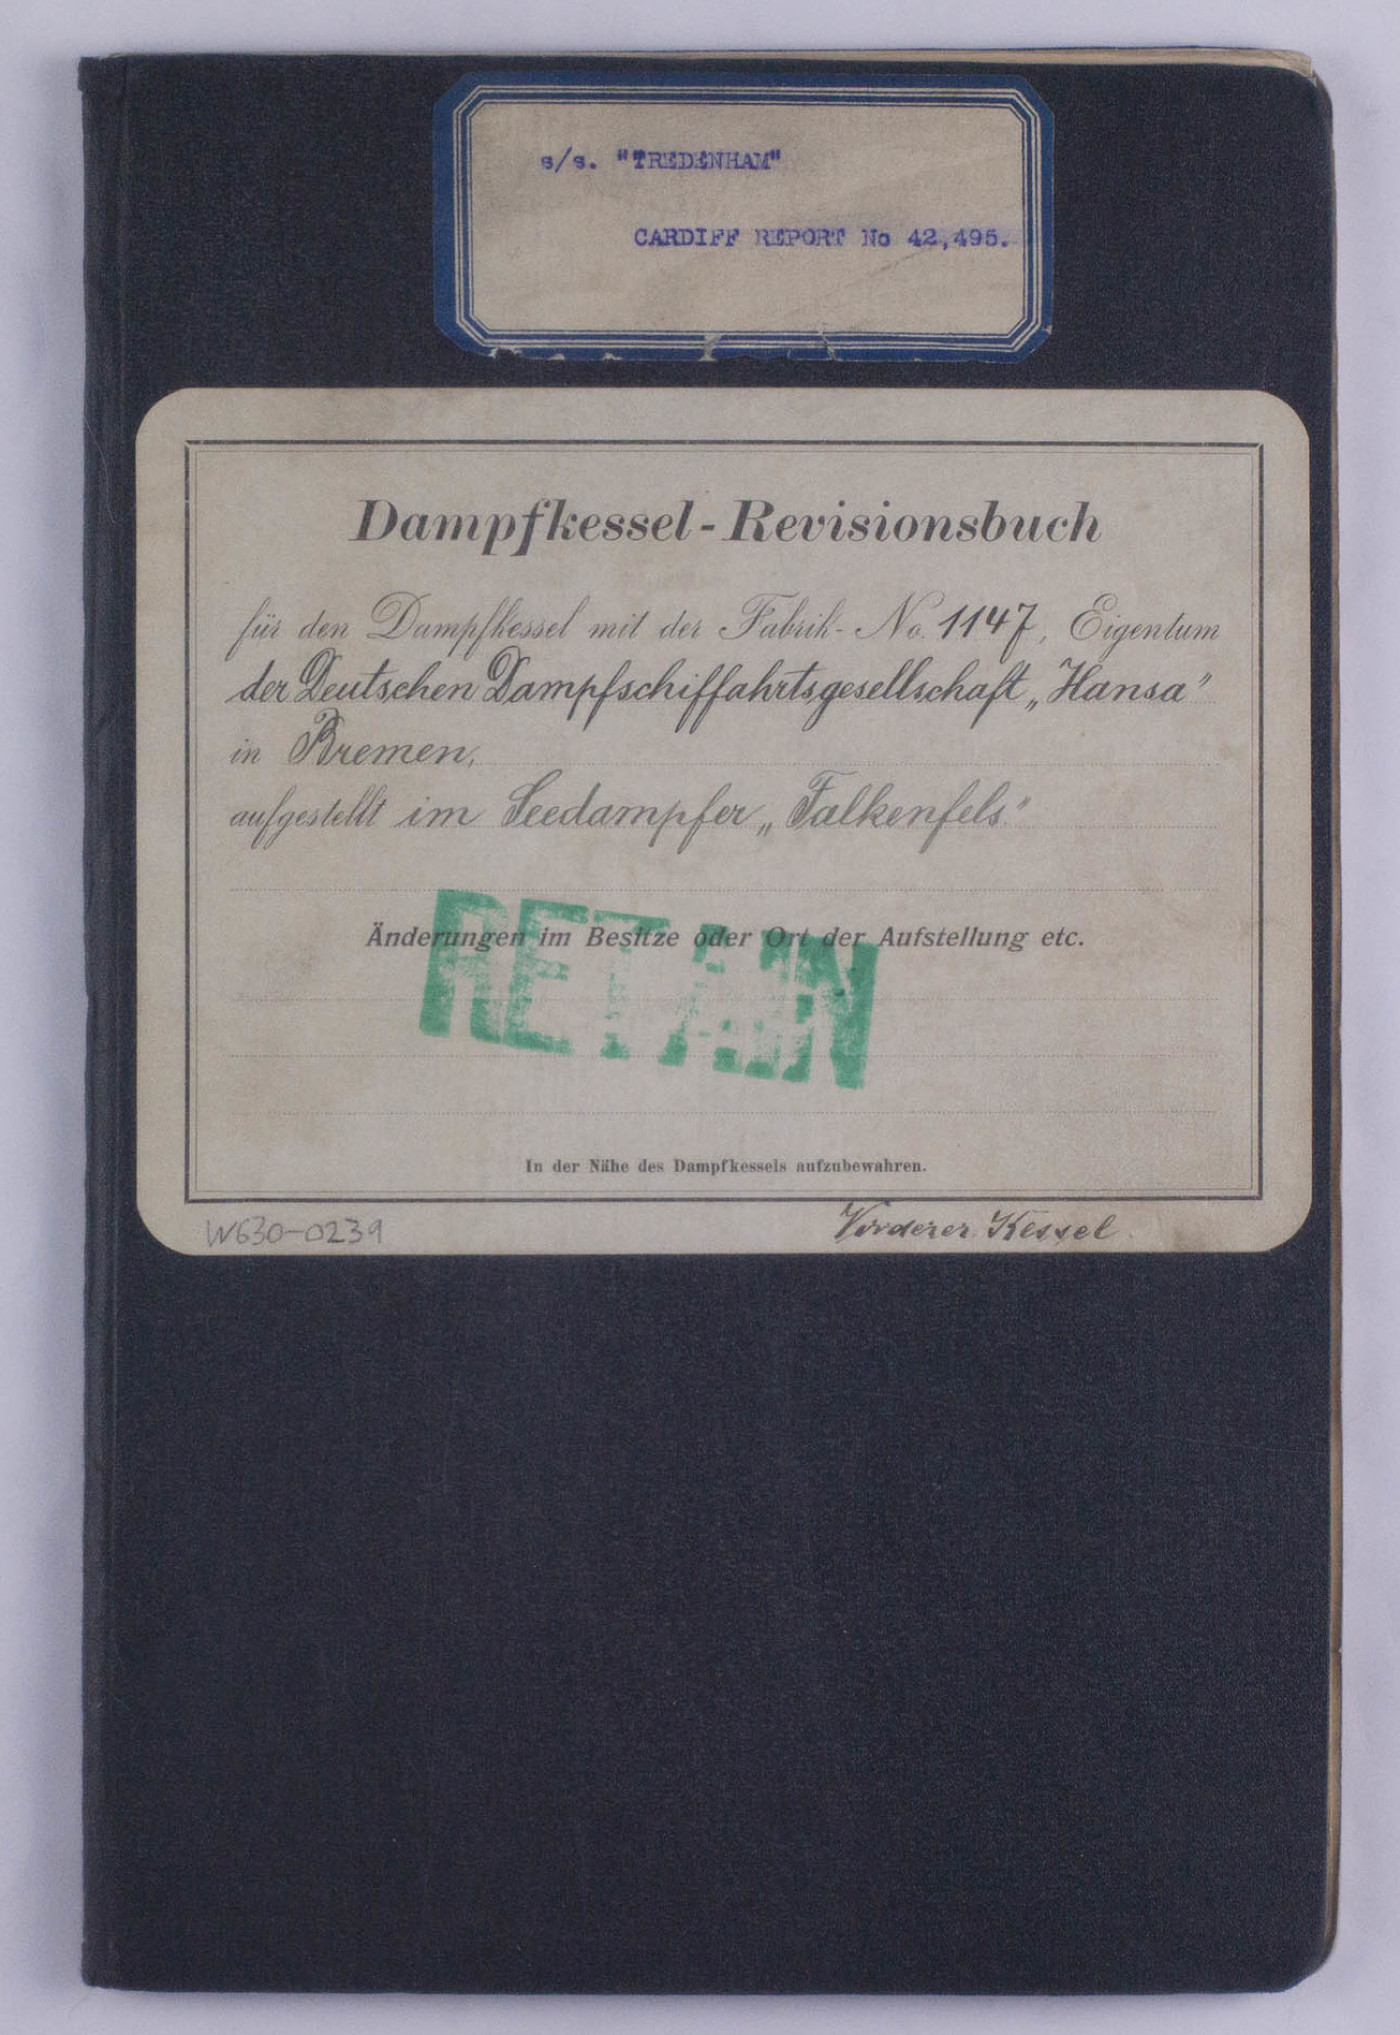 s/s. "TREDENHAM"
CARDIFF REPORT No 42,495.
Dampfkessel-Revisionsbuch
für den Dampfkessel mit der Fabrik-No. 1147, Eigentum
der Deutschen Dampfschiffahrtsgesellschaft „Hansa"
in Bremen,
aufgestellt im Seedampfer „Falkenfels."
RETAIN
Änderungen im Besitze oder Ort der Aufstellung etc.
In der Nähe des Dampfkessels aufzubewahren.
W630-0239
Vorderer Kessel.